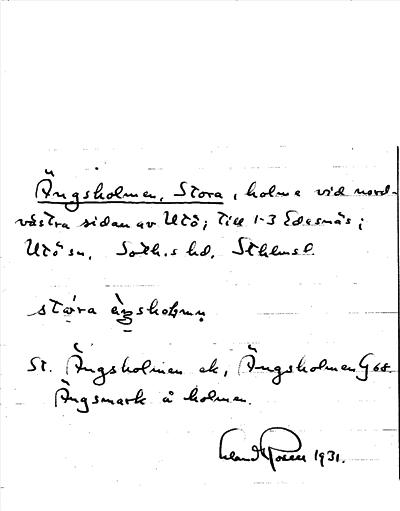 Ängsholmen, Stora, holme vid nord-
västra sidan av Utö; till 1-3 Edesnäs;
Utö sn, Soth.s hd, Sthlmsl.
stɷ̀ra ὲŋshɷlmn̥
St. Ängsholmen ek, Ängsholmen G 68.
Ängsmark å holmen.
Rosén 1931.